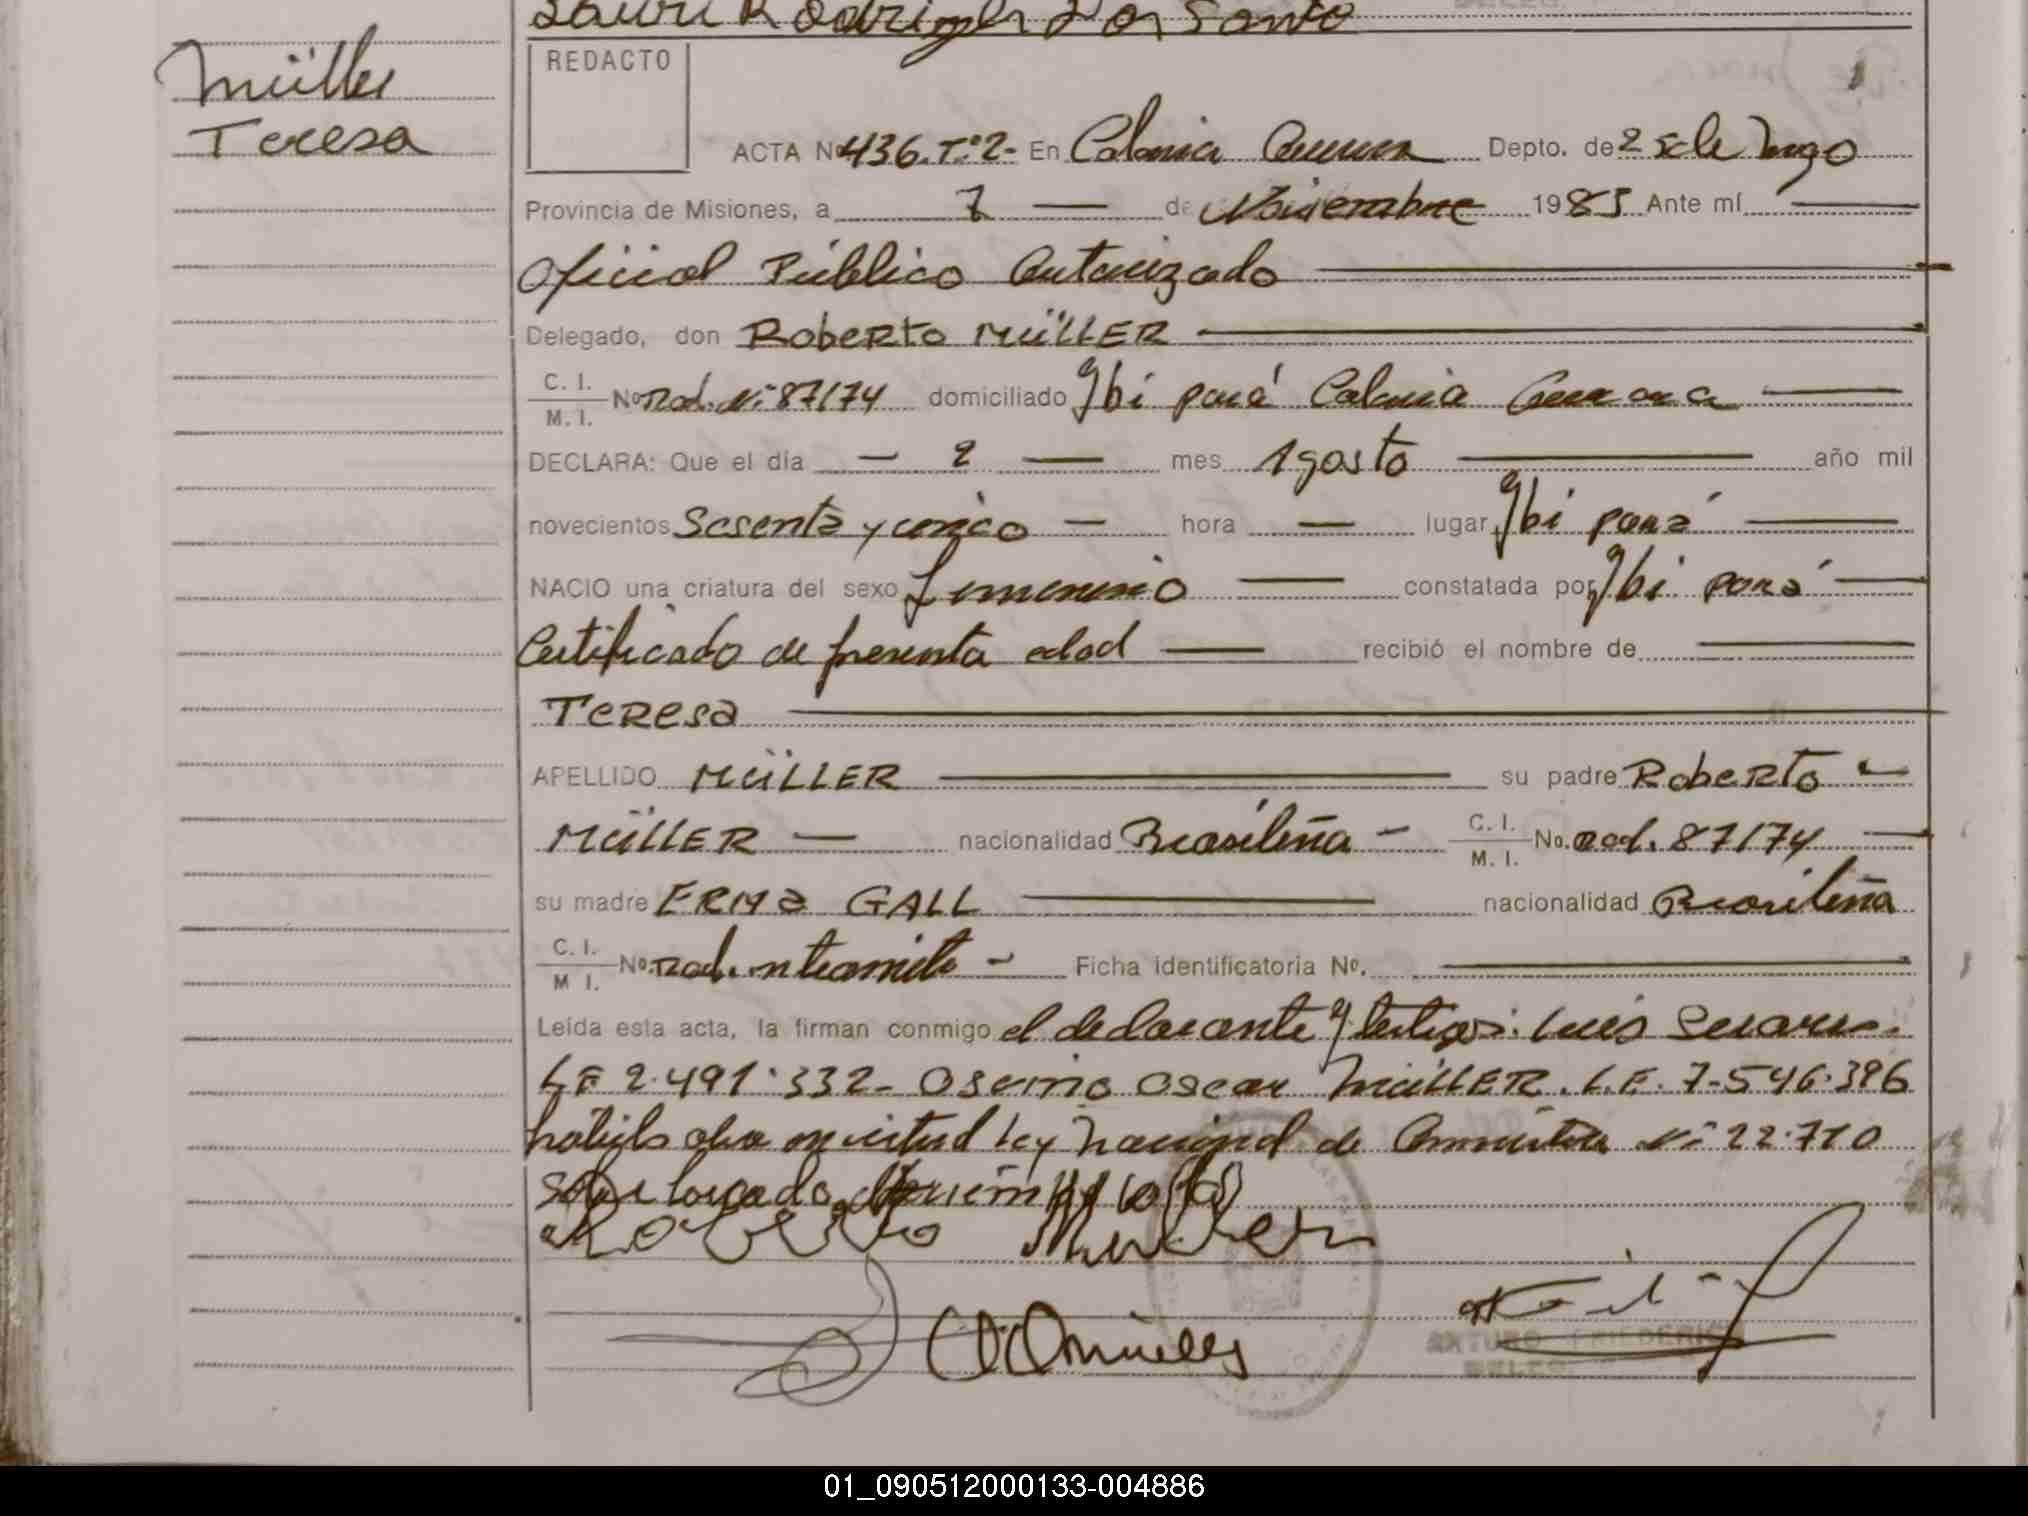 Müller
Teresa
REDACTO
ACTA Nº 436. T.º 2- En Colonia Aurora Depto. de 25 de Mayo
Provincia de Misiones, a 7 — de Noviembre 1985 Ante mí —
Oficial Público Autorizado —
Delegado, don Roberto MüLLER —
C. I. / M. I. Nº Rad. Nº 87174 domiciliado Ibi pará Colonia Aurora —
DECLARA: Que el día — 2 — mes Agosto — año mil
novecientos Sesenta y cinco — hora — lugar Ibi pará —
NACIO una criatura del sexo femenino — constatada por Ibi pará —
Certificado de presenta edad — recibió el nombre de —
Teresa —
APELLIDO MüLLER — su padre Roberto —
MüLLER — nacionalidad Brasileña — C. I. / M. I. No. Rad. 87174 —
su madre ERMa GALL — nacionalidad Brasileña
C. I. / M I. No. Rad. en tramite — Ficha identificatoria No. —
Leída esta acta, la firman conmigo el declarante y testigos: Luis
LE 2.491.332- Osmino Oscar MüLLER. L.E. 7.546.396
habiles obra en virtud Ley Nacional de Amnistia Nº 22.710
Sobre
Roberto Muller
ARTURO FRIEDERICH
01_090512000133-004886